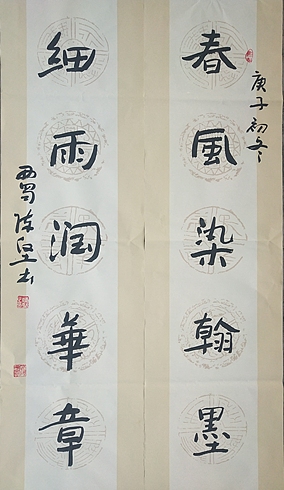 春風染翰墨
庚子初冬
細雨潤華章
西蜀陳堅书